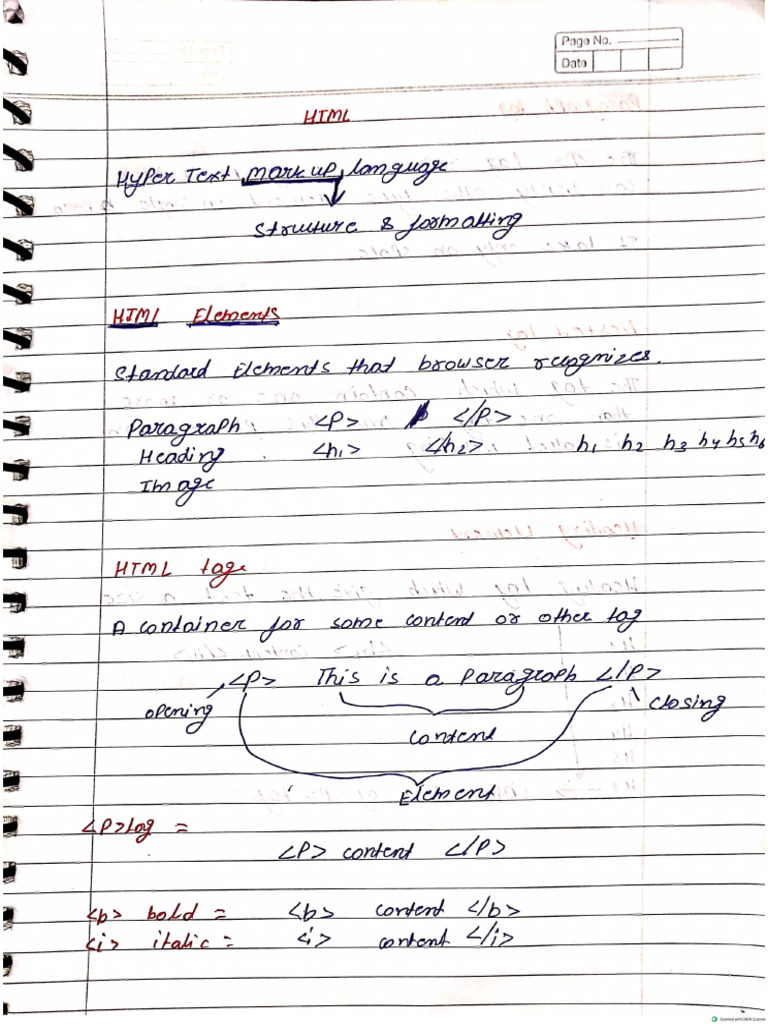 Page No.
Date
HTML
Hyper Text markup language
Structure & formatting
HTML Elements
Standard Elements that browser recognizes.
Paragraph <P> </P>
Heading <h1> </h2> h1 h2 h3 h4 h5 h6
Image
HTML tage
A container for some content or other tag
<P> This is a paragraph </P>
opening closing
content
Element
<P>tag =
<P> content </P>
<b> bold = <b> content </b>
<i> italic = <i> content </i>
Scanned with OKEN Scanner